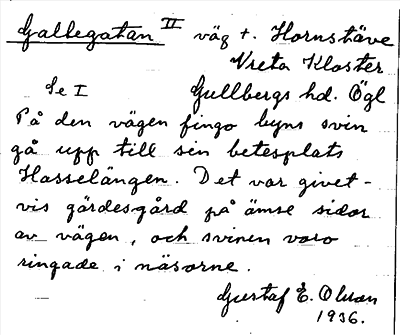 Gallegatan II väg t. Hornstäve
Vreta Kloster
Se I Gullbergs hd. Ögl
På den vägen fingo byns svin
gå upp till sin betesplats
Hasselängen. Det var givet-
vis gärdesgård på ämse sidor
av vägen, och svinen voro
ringade i näsorne.
Gustaf E. Olsson
1936.